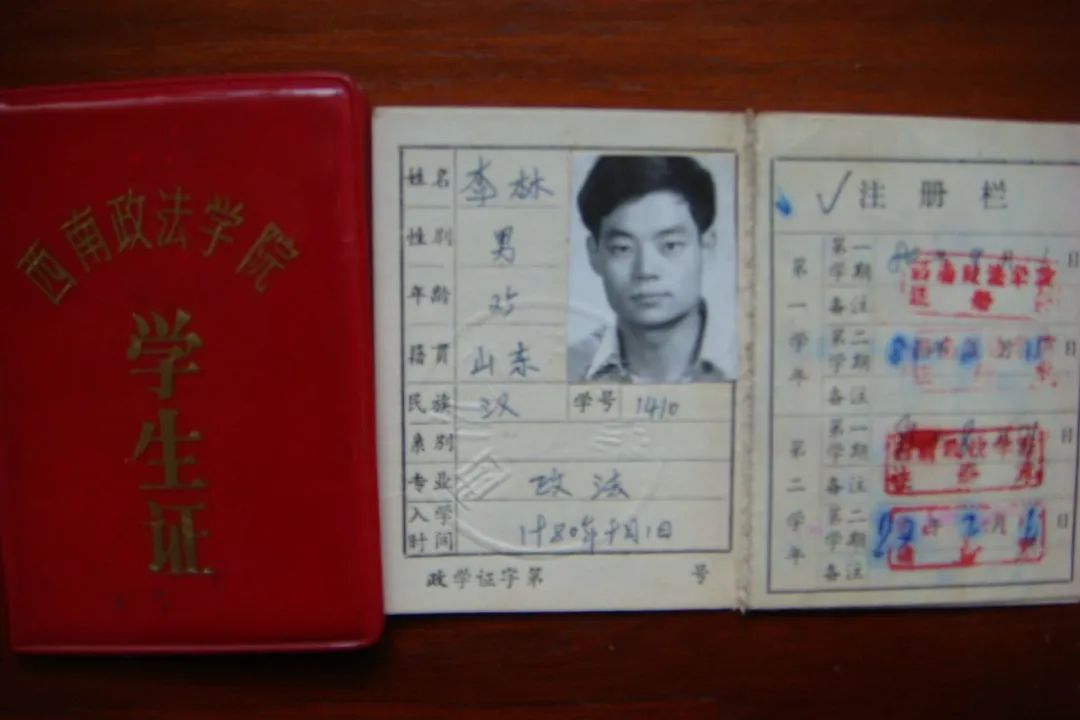 西南政法学院
学生证
姓名 李林
性别 男
年龄
籍贯 山东
民族 汉 学号 1410
系别
专业 政法
入学时间 1980年十月1日
政学证字第 号
√ 注册栏
第一学年
第一学期 日
备注
西南政法学院
注册
第二学期 年 月 日
备注
第二学年
第一学期 日
备注
第二学期 年 2 月 日
备注